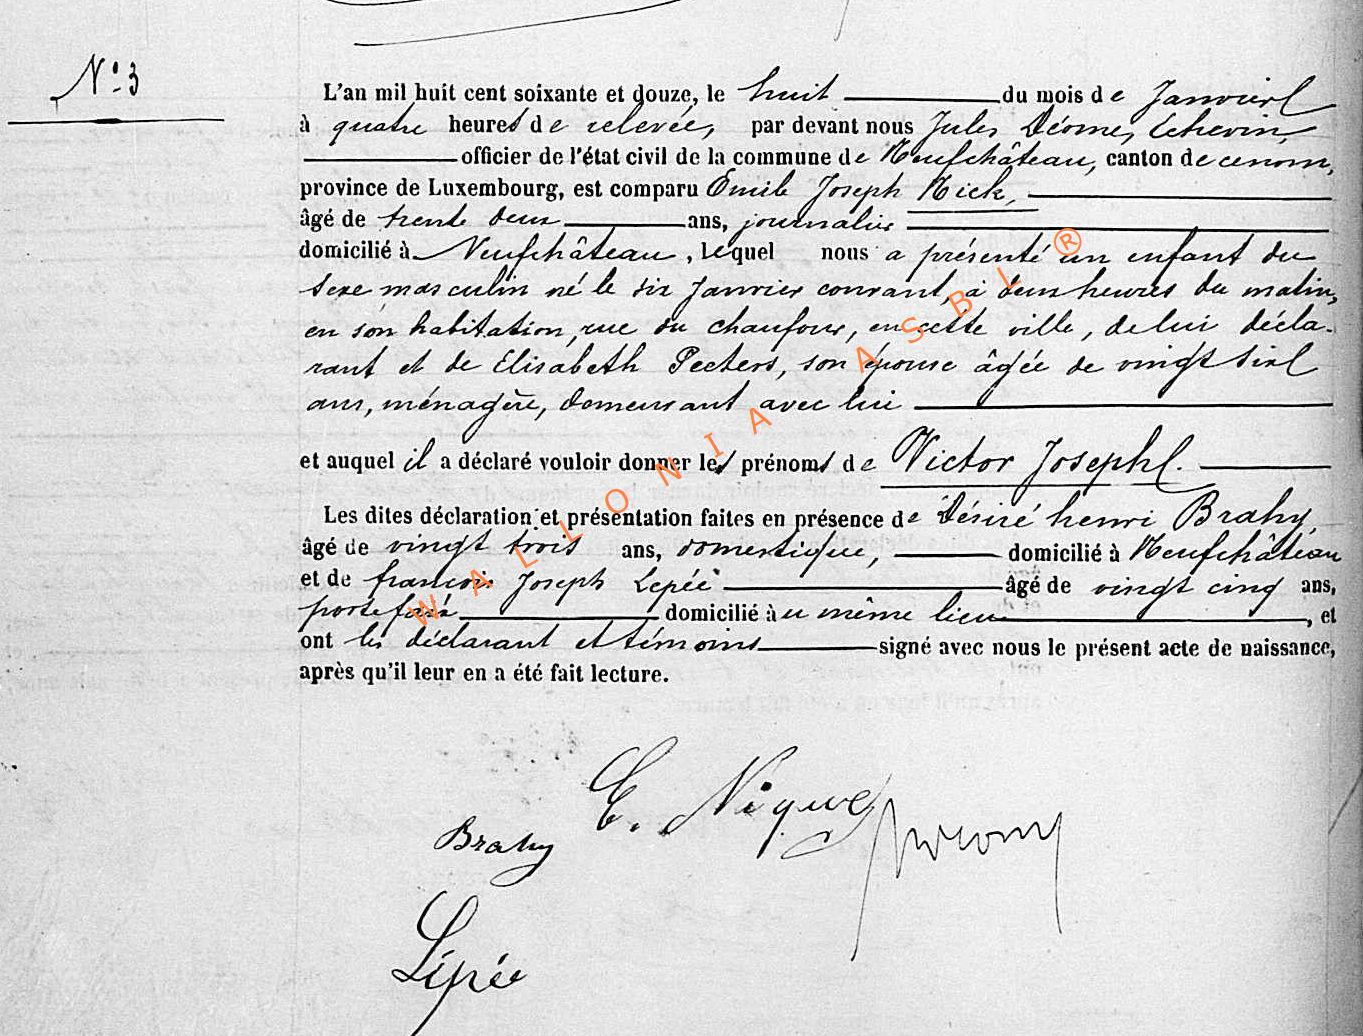 N° 3
L'an mil huit cent soixante et douze, le huit du mois de Janvier
à quatre heures de relevée, par devant nous Jules Déome, Echevin,
officier de l'état civil de la commune de Neufchâteau, canton de ce nom,
province de Luxembourg, est comparu Emile Joseph Nick,
âgé de trente deux ans, journalier
domicilié à Neufchâteau, lequel nous a présenté un enfant du
sexe masculin né le six Janvier courant, à deux heures du matin,
en son habitation, rue du chaufour, en cette ville, de lui décla-
rant et de Elisabeth Peeters, son épouse âgée de vingt six
ans, ménagère, demeurant avec lui
et auquel il a déclaré vouloir donner les prénoms de Victor Joseph.
Les dites déclaration et présentation faites en présence de Désiré henri Brahy,
âgé de vingt trois ans, domestique, domicilié à Neufchâteau
et de françois Joseph Lepée âgé de vingt cinq ans,
portefaix domicilié à u même lieu, et
ont les déclarant et témoins signé avec nous le présent acte de naissance,
après qu'il leur en a été fait lecture.
E. Nique
Brahy
Lépée
WALLONIA ASBL ®